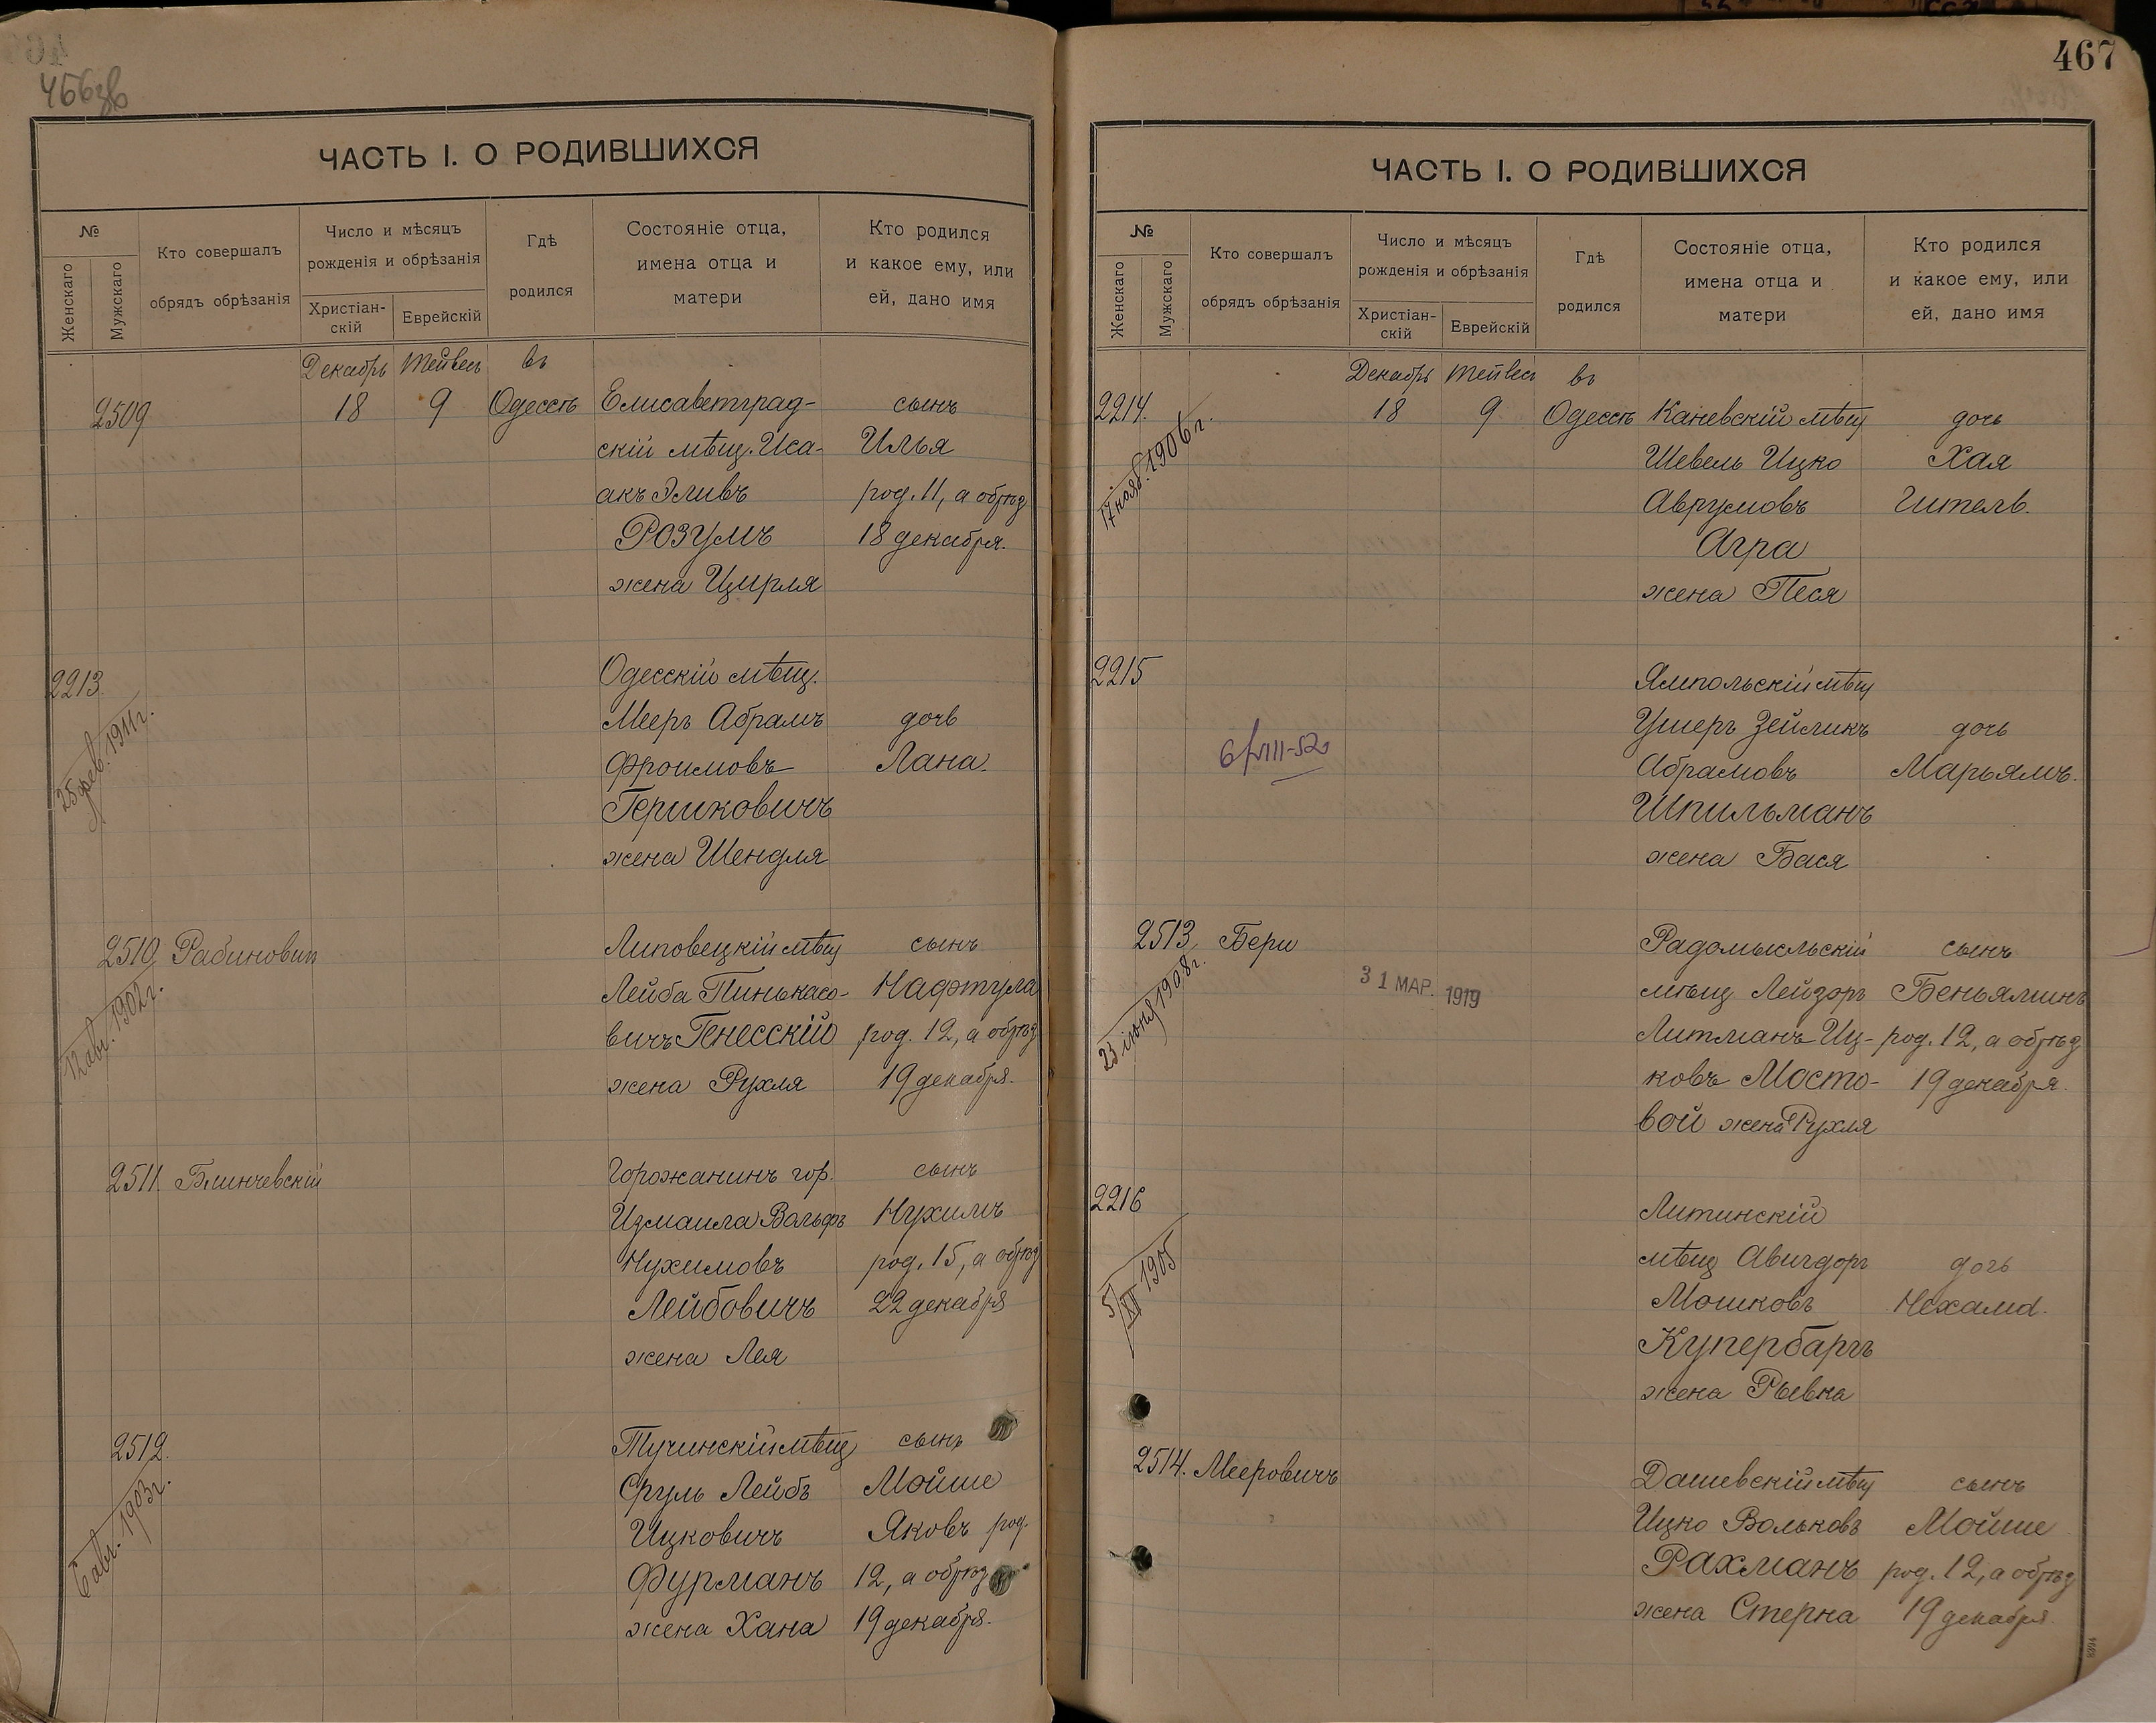 456зв
ЧАСТЬ I. О РОДИВШИХСЯ
№
Женскаго
Мужскаго
Кто совершалъ
обрядъ обрѣзанія
Число и мѣсяцъ
рожденія и обрѣзанія
Христіан-
скій
Еврейскій
Гдѣ
родился
Состояніе отца,
имена отца и
матери
Кто родился
и какое ему, или
ей, дано имя
Декабрь Тейвесъ въ
2509 18 9 Одессѣ Елисаветград- сынъ
скій мѣщ. Иса- Илья
акъ Эливъ род. 11, а обрѣз
Розумъ 18 декабря.
жена Цирля
2213 Одесскій мѣщ.
25 фев. 1911 г.
Мееръ Абрамъ дочь
Фроимовъ Хана.
Гершковичъ
жена Шендля
2510 Рабинович Липовецкій мѣщ сынъ
12 авг. 1902 г.
Лейба Пинькасо- Нафтула
вичъ Генесскій род. 12, а обрѣз
жена Рухля 19 декабря.
2511. Блинчевскій Горожанинъ гор. сынъ
Измаила Вольфъ Нухимъ
Нухимовъ род. 15, а обрѣз
Лейбовичъ 22 декабря
жена Лея
2512. Тучинскій мѣщ сынъ
6 авг. 1903 г.
Сруль Лейбъ Мойше
Ицковичъ Яковъ род.
Фурманъ 12, а обрѣз
жена Хана 19 декабря.
467
ЧАСТЬ I. О РОДИВШИХСЯ
№
Женскаго
Мужскаго
Кто совершалъ
обрядъ обрѣзанія
Число и мѣсяцъ
рожденія и обрѣзанія
Христіан-
скій
Еврейскій
Гдѣ
родился
Состояніе отца,
имена отца и
матери
Кто родился
и какое ему, или
ей, дано имя
Декабрь Тейвесъ въ
2214. 18 9 Одессѣ Каневскій мѣщ дочь
17 нояб. 1906 г.
Шевель Ицко Хая
Аврумовъ Гитель.
Агра
жена Песя
2215 Ямпольскій мѣщ
Ушеръ Зейликъ дочь
6/VIII-52
Абрамовъ Марьямъ.
Шпильманъ
жена Бася
2513 Бери Радомысльскій сынъ
23 іюня 1908 г.
31 МАР. 1919
мѣщ Лейзоръ Беньяминъ
Литманъ Иц- род. 12, а обрѣз
ковъ Мосто- 19 декабря.
вой жена Рухля
2216 Литинскій
5/XII 1905
мѣщ Авигдоръ дочь
Мошковъ Нехама.
Купербаргъ
жена Рывка
2514. Мееровичъ Дашевскій мѣщ сынъ
Ицко Вольковъ Мойше
Рахманъ род. 12, а обрѣз
жена Стерна 19 декабря